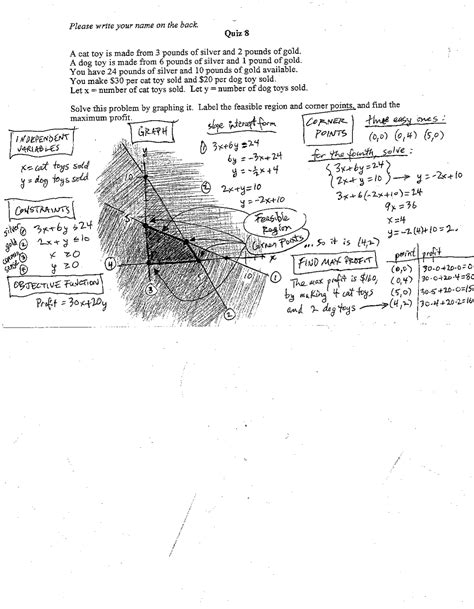 Please write your name on the back.
Quiz 8
A cat toy is made from 3 pounds of silver and 2 pounds of gold.
A dog toy is made from 6 pounds of silver and 1 pound of gold.
You have 24 pounds of silver and 10 pounds of gold available.
You make $30 per cat toy sold and $20 per dog toy sold.
Let x = number of cat toys sold. Let y = number of dog toys sold.
Solve this problem by graphing it. Label the feasible region and corner points, and find the
maximum profit.
INDEPENDENT
VARIABLES
x = cat toys sold
y = dog toys sold
CONSTRAINTS
silver ① 3x+6y ≤ 24
gold ② 2x + y ≤ 10
common sense ③ x ≥ 0
④ y ≥ 0
OBJECTIVE FUNCTION
Profit = 30x+20y
GRAPH
y
10
5
x
10
④
③
②
①
Feasible
Region
Corner Points
slope intercept form
① 3x+6y = 24
6y = -3x+24
y = -½x+4
② 2x+y=10
y = -2x+10
CORNER
POINTS
three easy ones:
(0,0) (0,4) (5,0)
for the fourth, solve:
3x+6y=24
2x+y=10 → y = -2x+10
3x+6(-2x+10)=24
9x=36
x=4
y=-2(4)+10=2.
... so it is (4,2)
FIND MAX PROFIT
The max profit is $160,
by making 4 cat toys
and 2 dog toys
point profit
(0,0) 30·0+20·0=0
(0,4) 30·0+20·4=80
(5,0) 30·5+20·0=150
(4,2) 30·4+20·2=160